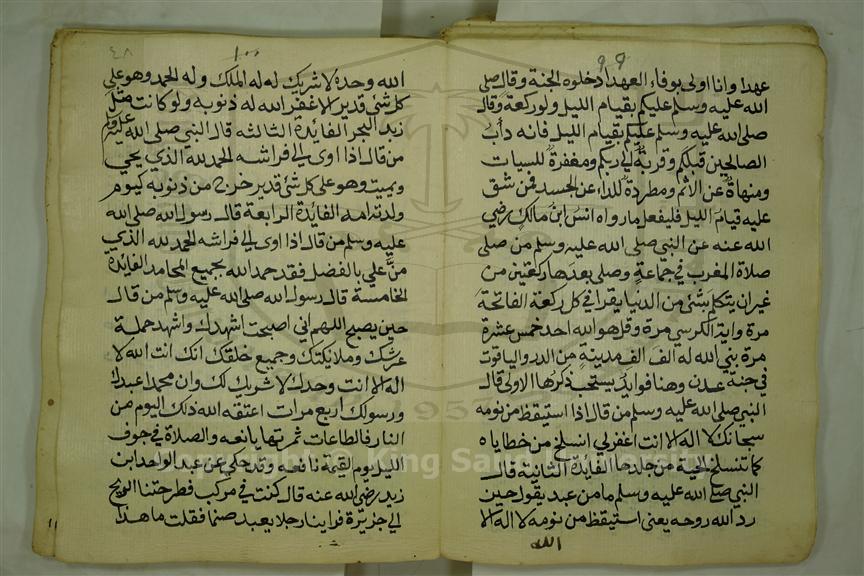 ٩٩
عهدا وانا اولى بوفاء العهد ادخلوه الجنة وقال صلى
الله عليه وسلم عليكم بقيام الليل ولو ركعة وقال
صلى الله عليه وسلم عليكم بقيام الليل فانه دأب
الصالحين قبلكم وقربة الى ربكم ومغفرة للسيات
ومنهاة عن الاثم ومطردة للداء عن الجسد فمن شق
عليه قيام الليل فليفعل ما رواه انس ابن مالك رضي
الله عنه عن النبي صلى الله عليه وسلم من صلى
صلاة المغرب في جماعة وصلى بعدها ركعتين من
غير ان يتكلم بشئ من الدنيا يقرا في كل ركعة الفاتحة
مرة واية الكرسي مرة وقل هو الله احد خمس عشرة
مرة بني الله له الف الف مدينة من الدر والياقوت
في جنة عدن وهنا فوايد يستحب ذكرها الاولى قال
النبي صلى الله عليه وسلم من قال اذا استيقظ من نومه
سبحانك لا اله الا انت اغفر لي انسلخ من خطاياه
كما تنسلخ الحية من جلدها الفائدة الثانية قال
النبي صلى الله عليه وسلم ما من عبد يقول حين
رد الله روحه يعني استيقظ من نومه لا اله الا
الله
١٠٠
٤٨
الله وحده لا شريك له له الملك وله الحمد وهو على
كل شئ قدير الا غفر الله له ذنوبه ولو كانت مثل
زبد البحر الفايدة الثالثه قال النبي صلى الله عليه وسلم
من قال اذا اوى الى فراشه الحمد لله الذي يحي
ويميت وهو على كل شئ قدير خرج من ذنوبه كيوم
ولدته امه الفايدة الرابعة قال رسول الله صلى الله
عليه وسلم من قال اذا اوى الى فراشه الحمد لله الذي
منّ علي بالفضل فقد حمد الله بجميع المحامد الفايدة
الخامسة قال رسول الله صلى الله عليه وسلم من قال
حين يصبح اللهم اني اصبحت اشهدك واشهد حملة
عرشك وملايكتك وجميع خلقك انك انت الله لا
اله الا انت وحدك لا شريك لك وان محمدا عبدك
ورسولك اربع مرات اعتقه الله ذلك اليوم من
النار فالطاعات ثمرتها يانعه والصلاة في جوف
الليل يوم القيمة نافعه وقد حكي عن عبد الواحد ابن
زيد رضي الله عنه قال كنت في مركب فطرحتنا الريح
الى جزيرة فراينا رجلا يعبد صنما فقلت ما هذا
Copyright © King Saud University
1957